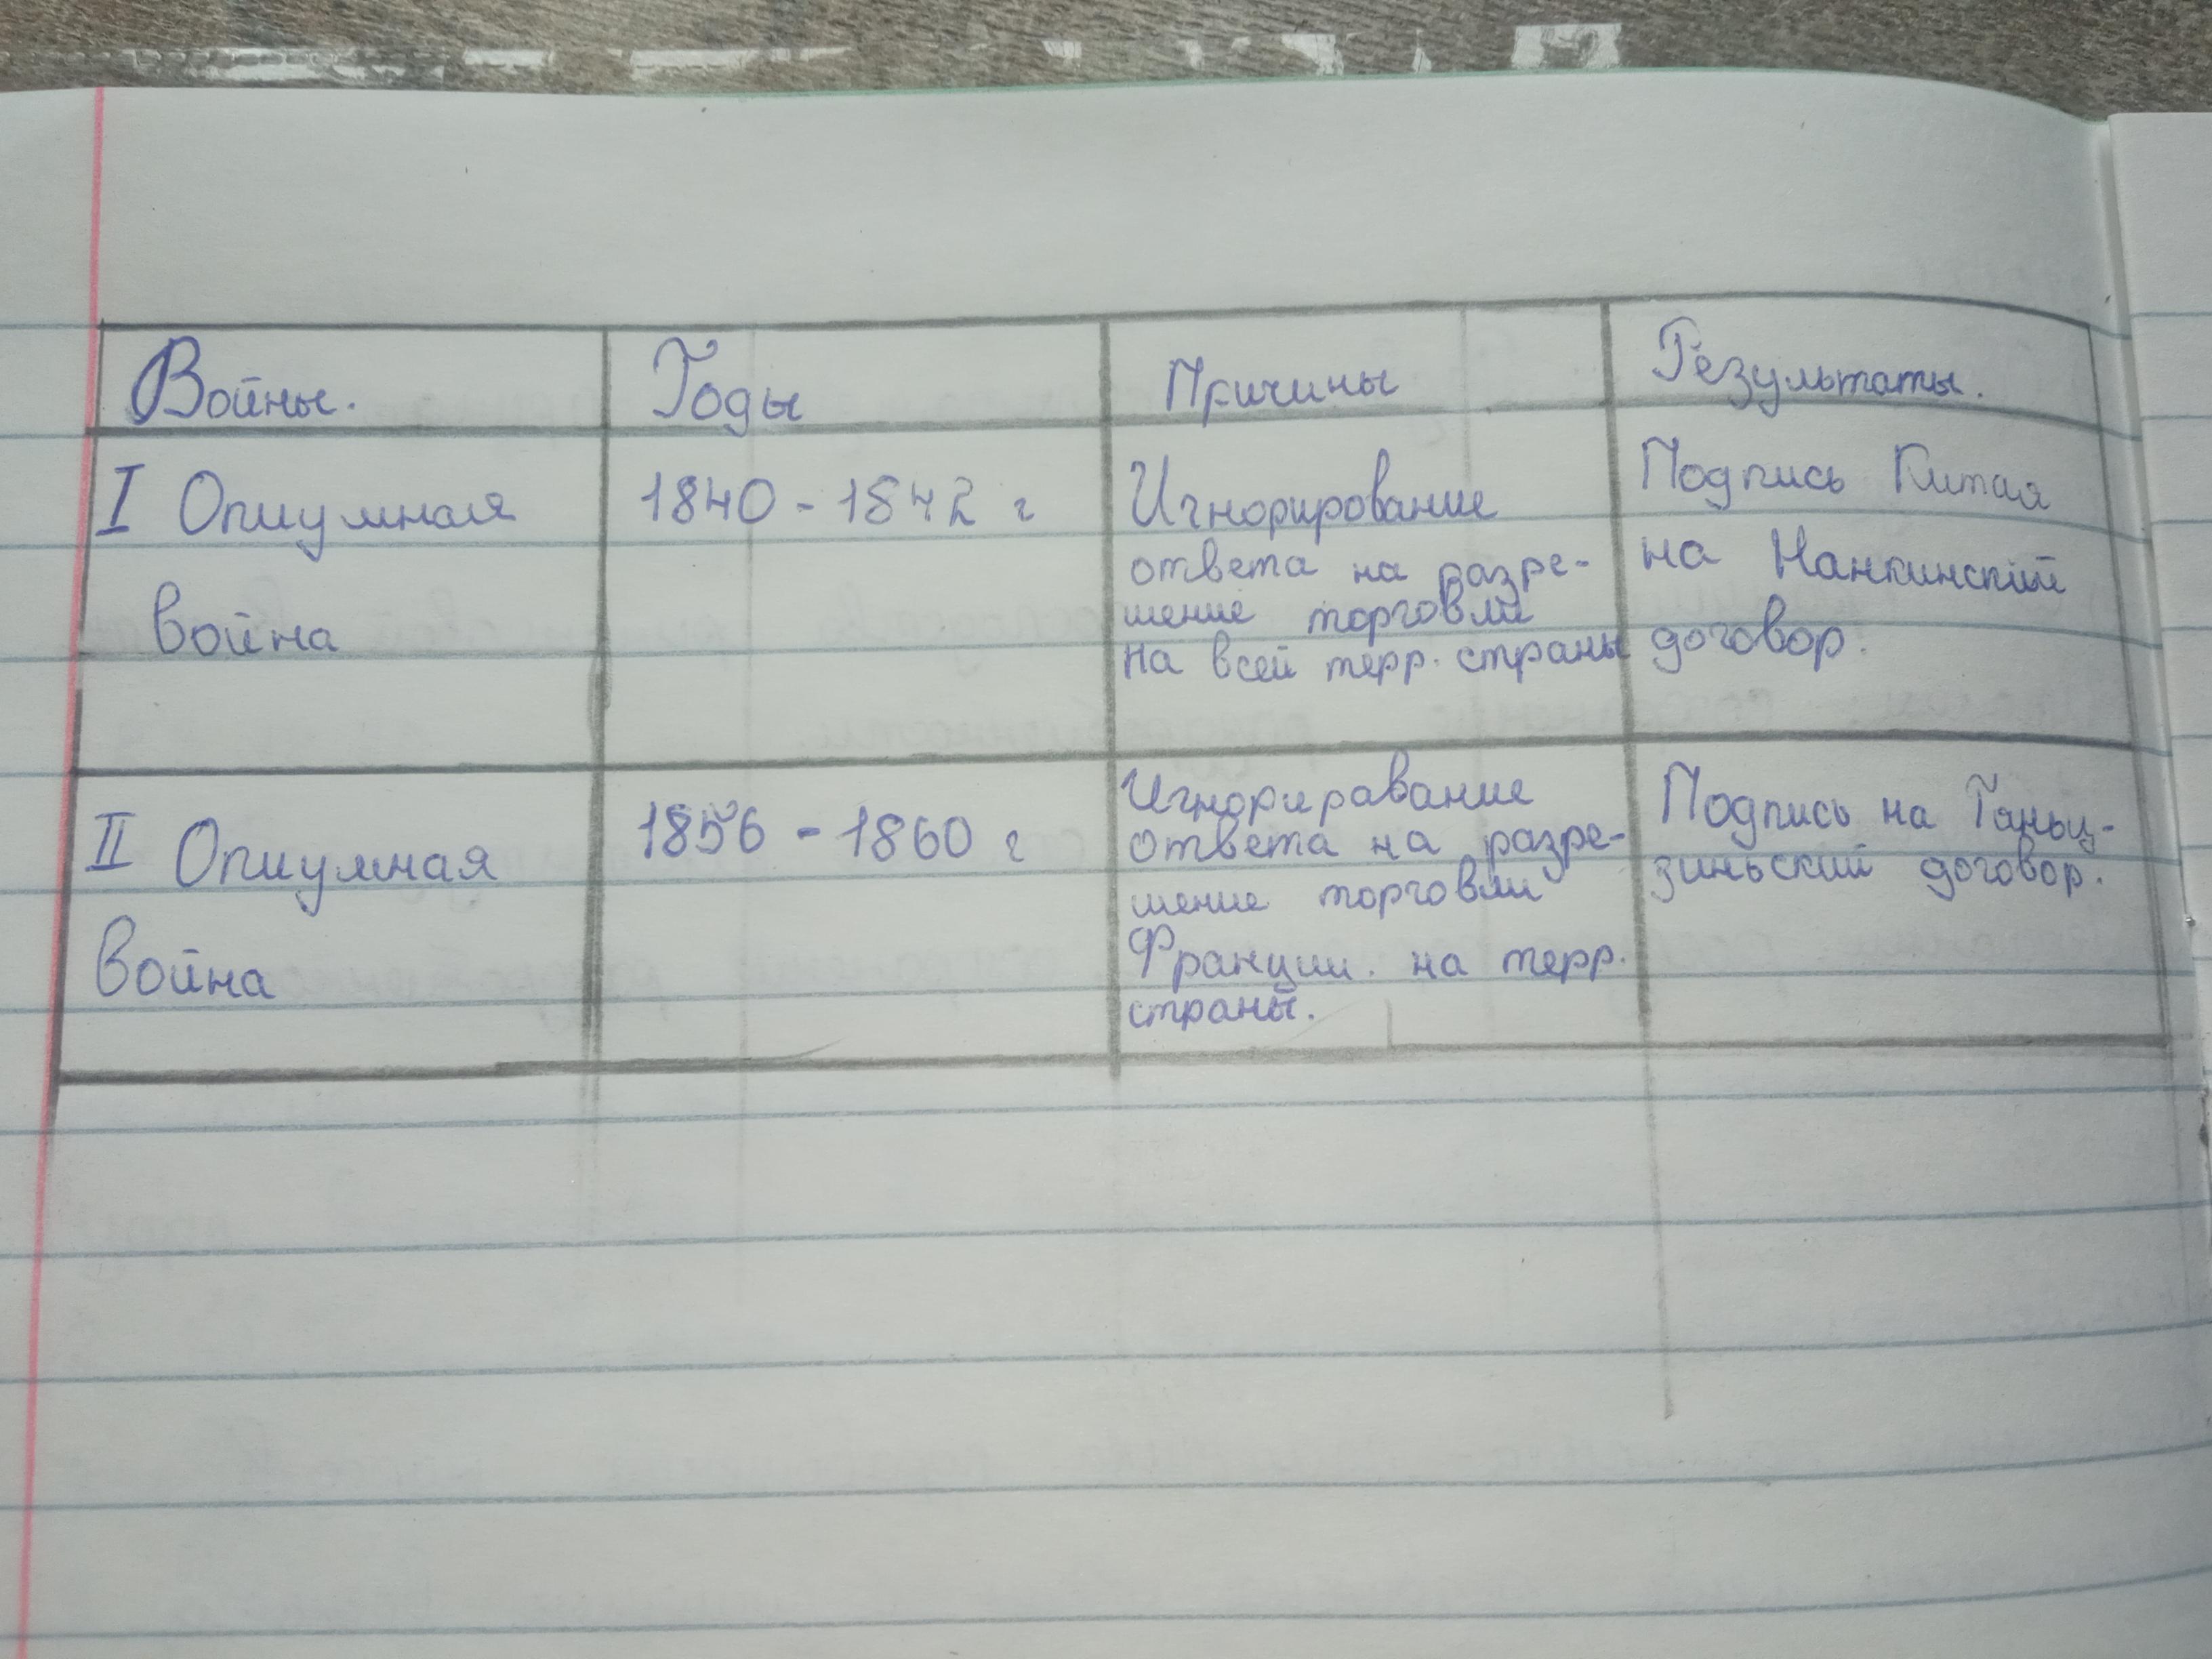 Войны. Годы Причины Результаты.
I Опиумная
война
1840 - 1842 г
Игнорирование
ответа на разре-
шение торговли
на всей терр. страны
Подпись Китая
на Нанкинский
договор.
II Опиумная
война
1856 - 1860 г
Игнориравание
ответа на разре-
шение торговли
Франции. на терр.
страны.
Подпись на Таньц-
зиньский договор.